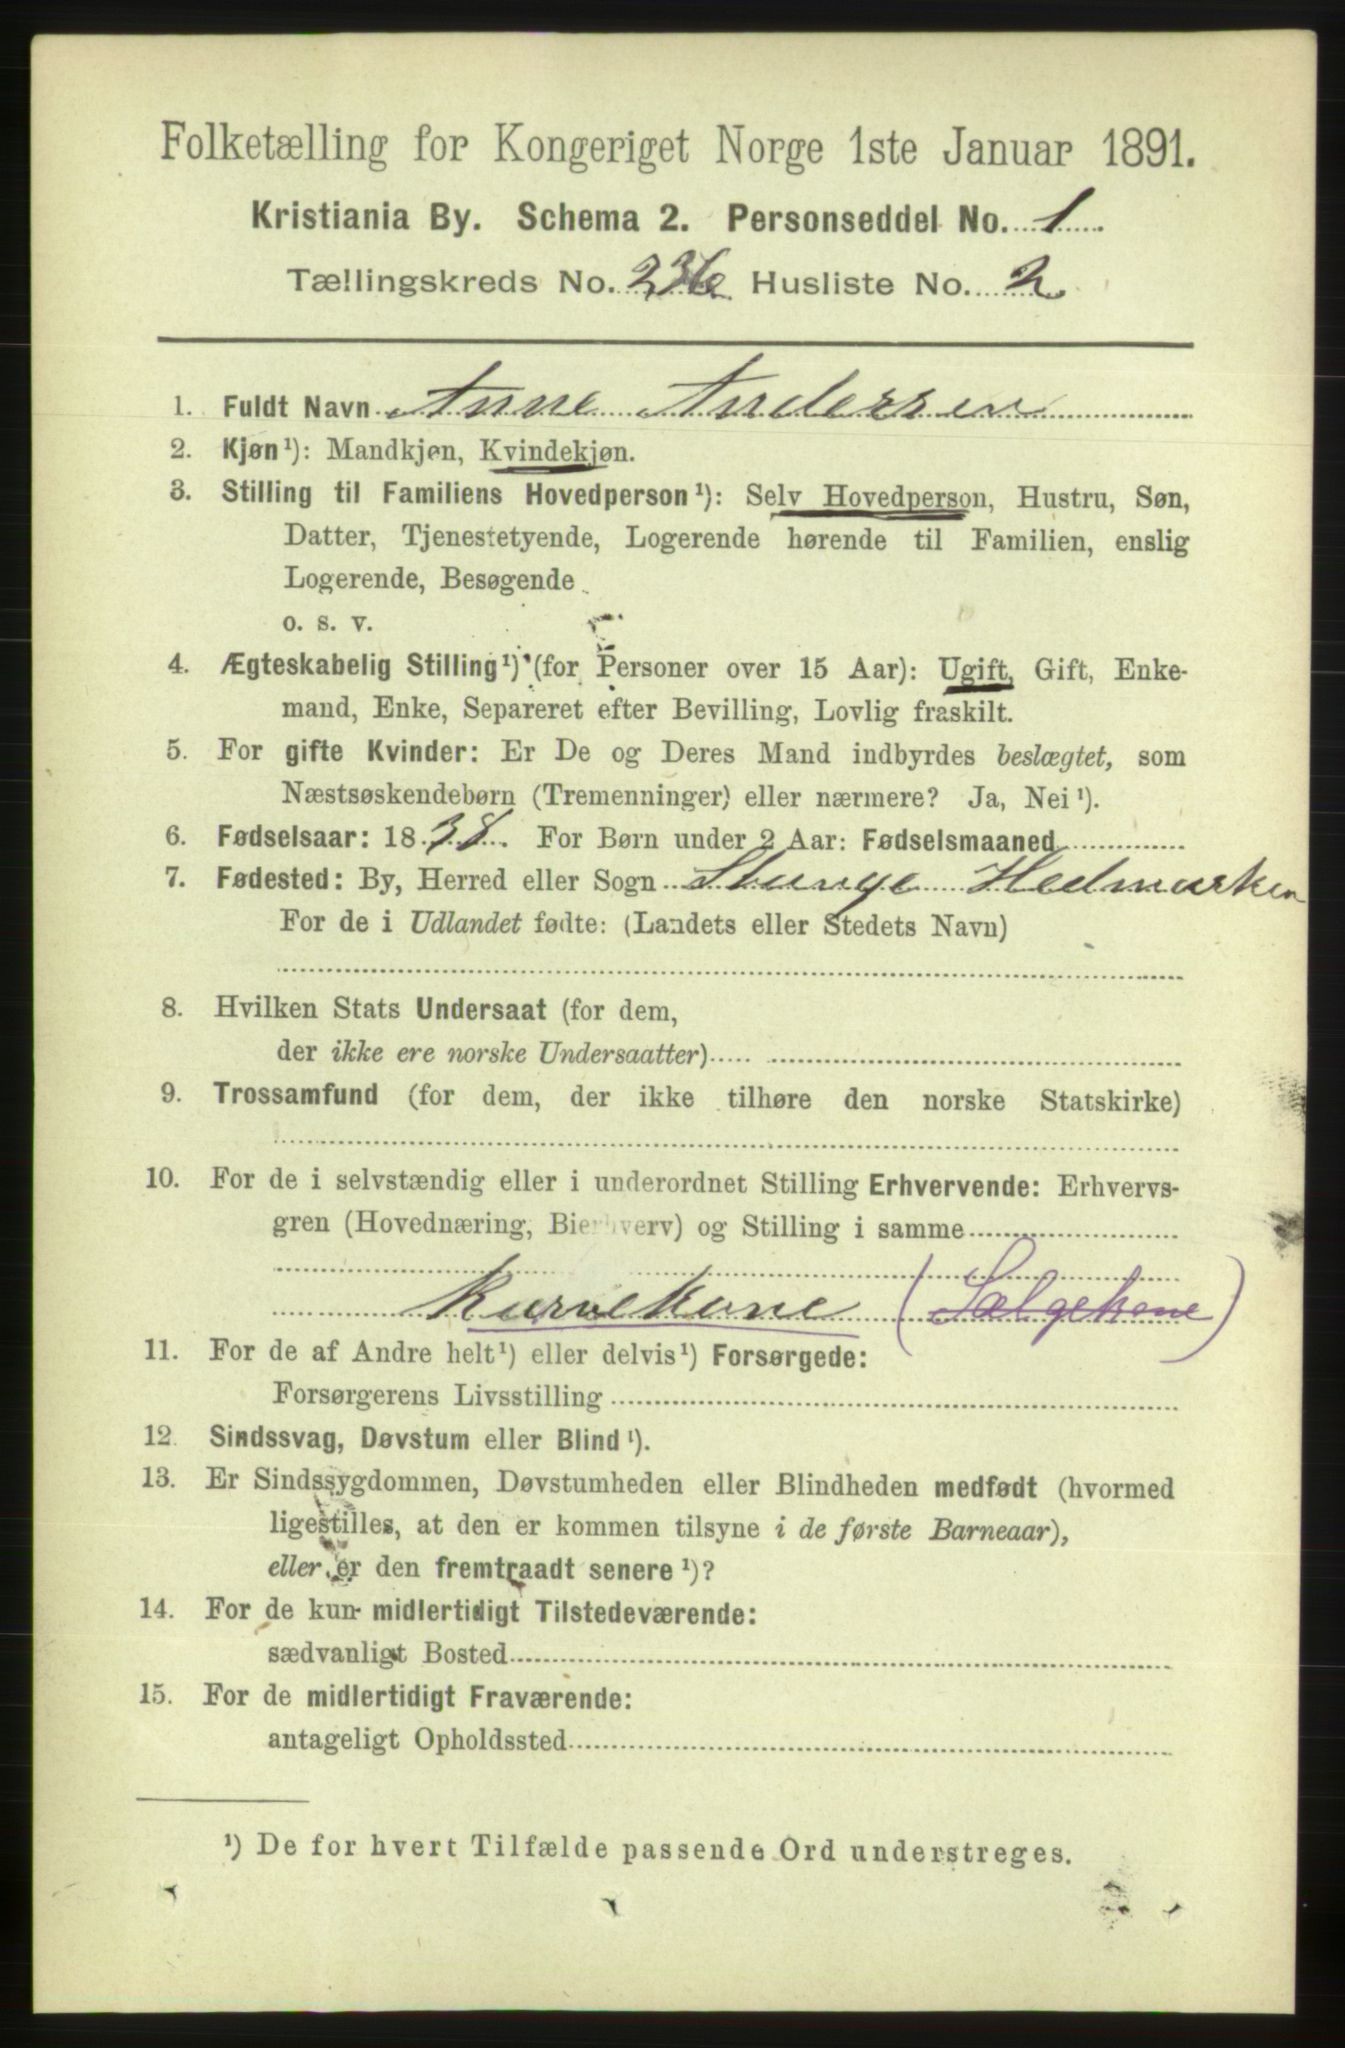 Folketælling for Kongeriget Norge 1ste Januar 1891.
Kristiania By. Schema 2. Personseddel No. 1
Tællingskreds No. 236 Husliste No. 2
1. Fuldt Navn Anne Andersen
2. Kjøn¹): Mandkjøn, Kvindekjøn.
3. Stilling til Familiens Hovedperson¹): Selv Hovedperson, Hustru, Søn,
Datter, Tjenestetyende, Logerende hørende til Familien, enslig
Logerende, Besøgende
o. s. v.
4. Ægteskabelig Stilling¹) (for Personer over 15 Aar): Ugift, Gift, Enke-
mand, Enke, Separeret efter Bevilling, Lovlig fraskilt.
5. For gifte Kvinder: Er De og Deres Mand indbyrdes beslægtet, som
Næstsøskendebørn (Tremenninger) eller nærmere? Ja, Nei¹).
6. Fødselsaar: 1838. For Børn under 2 Aar: Fødselsmaaned
7. Fødested: By, Herred eller Sogn Stange Hedmarken
For de i Udlandet fødte: (Landets eller Stedets Navn)
8. Hvilken Stats Undersaat (for dem,
der ikke ere norske Undersaatter)
9. Trossamfund (for dem, der ikke tilhøre den norske Statskirke)
10. For de i selvstændig eller i underordnet Stilling Erhvervende: Erhvervs-
gren (Hovednæring, Bierhverv) og Stilling i samme
Kurvekone (Sælgekone)
11. For de af Andre helt¹) eller delvis¹) Forsørgede:
Forsørgerens Livsstilling
12. Sindssvag, Døvstum eller Blind¹).
13. Er Sindssygdommen, Døvstumheden eller Blindheden medfødt (hvormed
ligestilles, at den er kommen tilsyne i de første Barneaar),
eller er den fremtraadt senere¹)?
14. For de kun midlertidigt Tilstedeværende:
sædvanligt Bosted
15. For de midlertidigt Fraværende:
antageligt Opholdssted
¹) De for hvert Tilfælde passende Ord understreges.